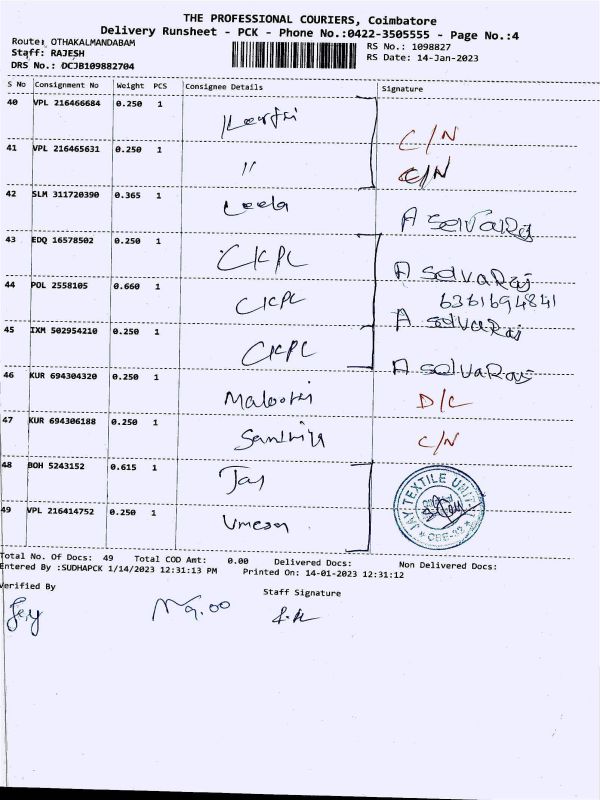 THE PROFESSIONAL COURIERS, Coimbatore
Delivery Runsheet - PCK - Phone No.:0422-3505555 - Page No.:4
Route: OTHAKALMANDABAM
RS No.: 1098827
Staff: RAJESH
RS Date: 14-Jan-2023
DRS No.: DCJB109882704
S No Consignment No Weight PCS Consignee Details Signature
40 VPL 216466684 0.250 1 C/N
41 VPL 216465631 0.250 1 " C/N
42 SLM 311720390 0.365 1 Leela A Selvaraj
43 EDQ 16578502 0.250 1 CKPC A SelvaRaj
6361694841
44 POL 2558105 0.660 1 CKPC A SelvaRaj
45 IXM 502954210 0.250 1 CKPC A SelvaRaj
46 KUR 694304320 0.250 1 D/C
47 KUR 694306188 0.250 1 C/N
48 BOH 5243152 0.615 1 Jay JAY TEXTILE UNIT
CBE-
49 VPL 216414752 0.250 1 Umesan
Total No. Of Docs: 49 Total COD Amt: 0.00 Delivered Docs: Non Delivered Docs:
Entered By :SUDHAPCK 1/14/2023 12:31:13 PM Printed On: 14-01-2023 12:31:12
Verified By Staff Signature
9.00